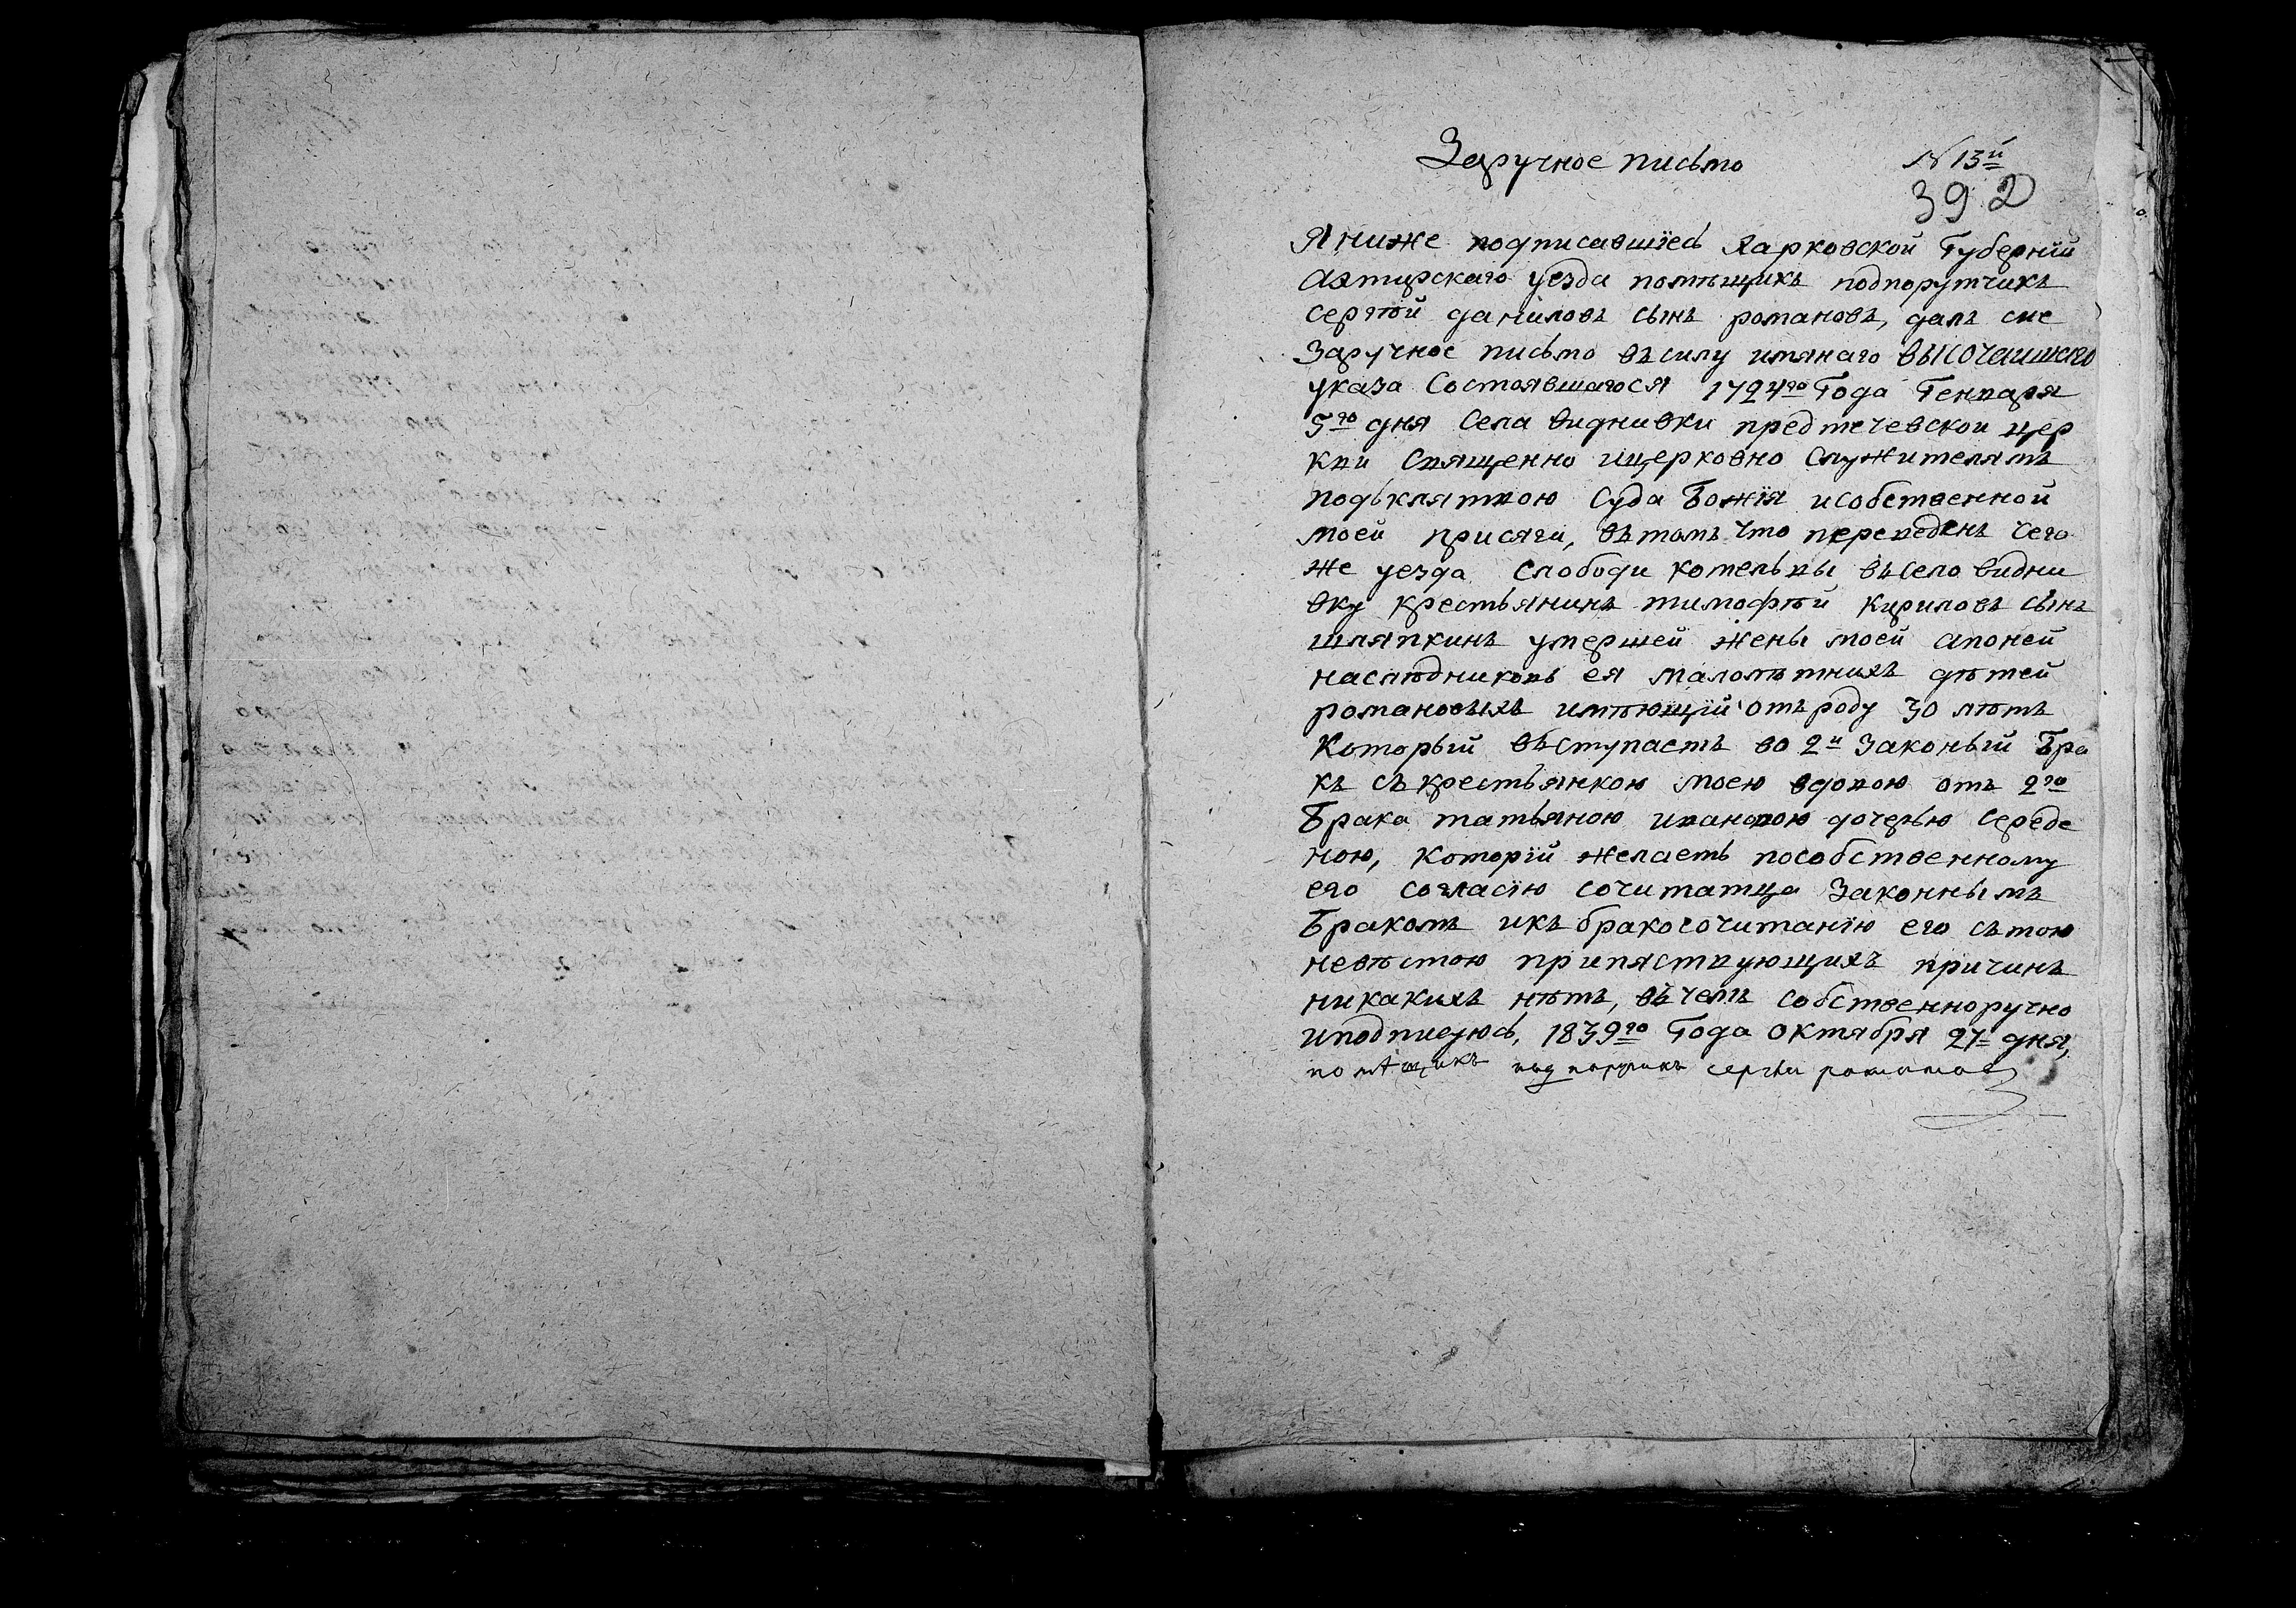 Заручное письмо
N 13й
392
Я ниже подписавшїесь Харковской Губернїй
Ахтирскаго уезда помѣщикъ подпорутчикъ
сергѣй даниловъ сынъ романовъ, далъ сие
Заручное письмо въсилу имянаго ВЫСОЧАИШАГО
указа Состоявшагося 1724го Года Генваря
5го дня Села видниовки предтечевской цер
кви Священно ицерковно Служителямъ
подъклятвою Суда Божїя исобственной
моей присяги, вътомъ что переведенъ чего
же уезда Слободи котельвы въСело видни
вку крестьянинъ тимофѣй Кириловъ сынъ
шляпкинъ умершей жены моей апоней
наслѣдниковъ ея малолѣтнихъ дѣтей
романовыхъ имѣющїй отъ роду 30 лѣтъ
Который въступаетъ во 2й Законый Бра
къ съкрестьянкою моею вдовою отъ 2го
Брака татьяною ивановою дочерью Середе
ною, Которїй желаетъ пособственному
его согласїю сочитатца Законнымъ
Бракомъ икъ бракосочитанїю его сътою
невѣстою припяствующихъ причинъ
никакихъ нѣтъ, въчемъ собственноручно
иподписуюсь, 1839го Года Октября 27 дня,
помѣщикъ подпоручикъ сергѣи романов